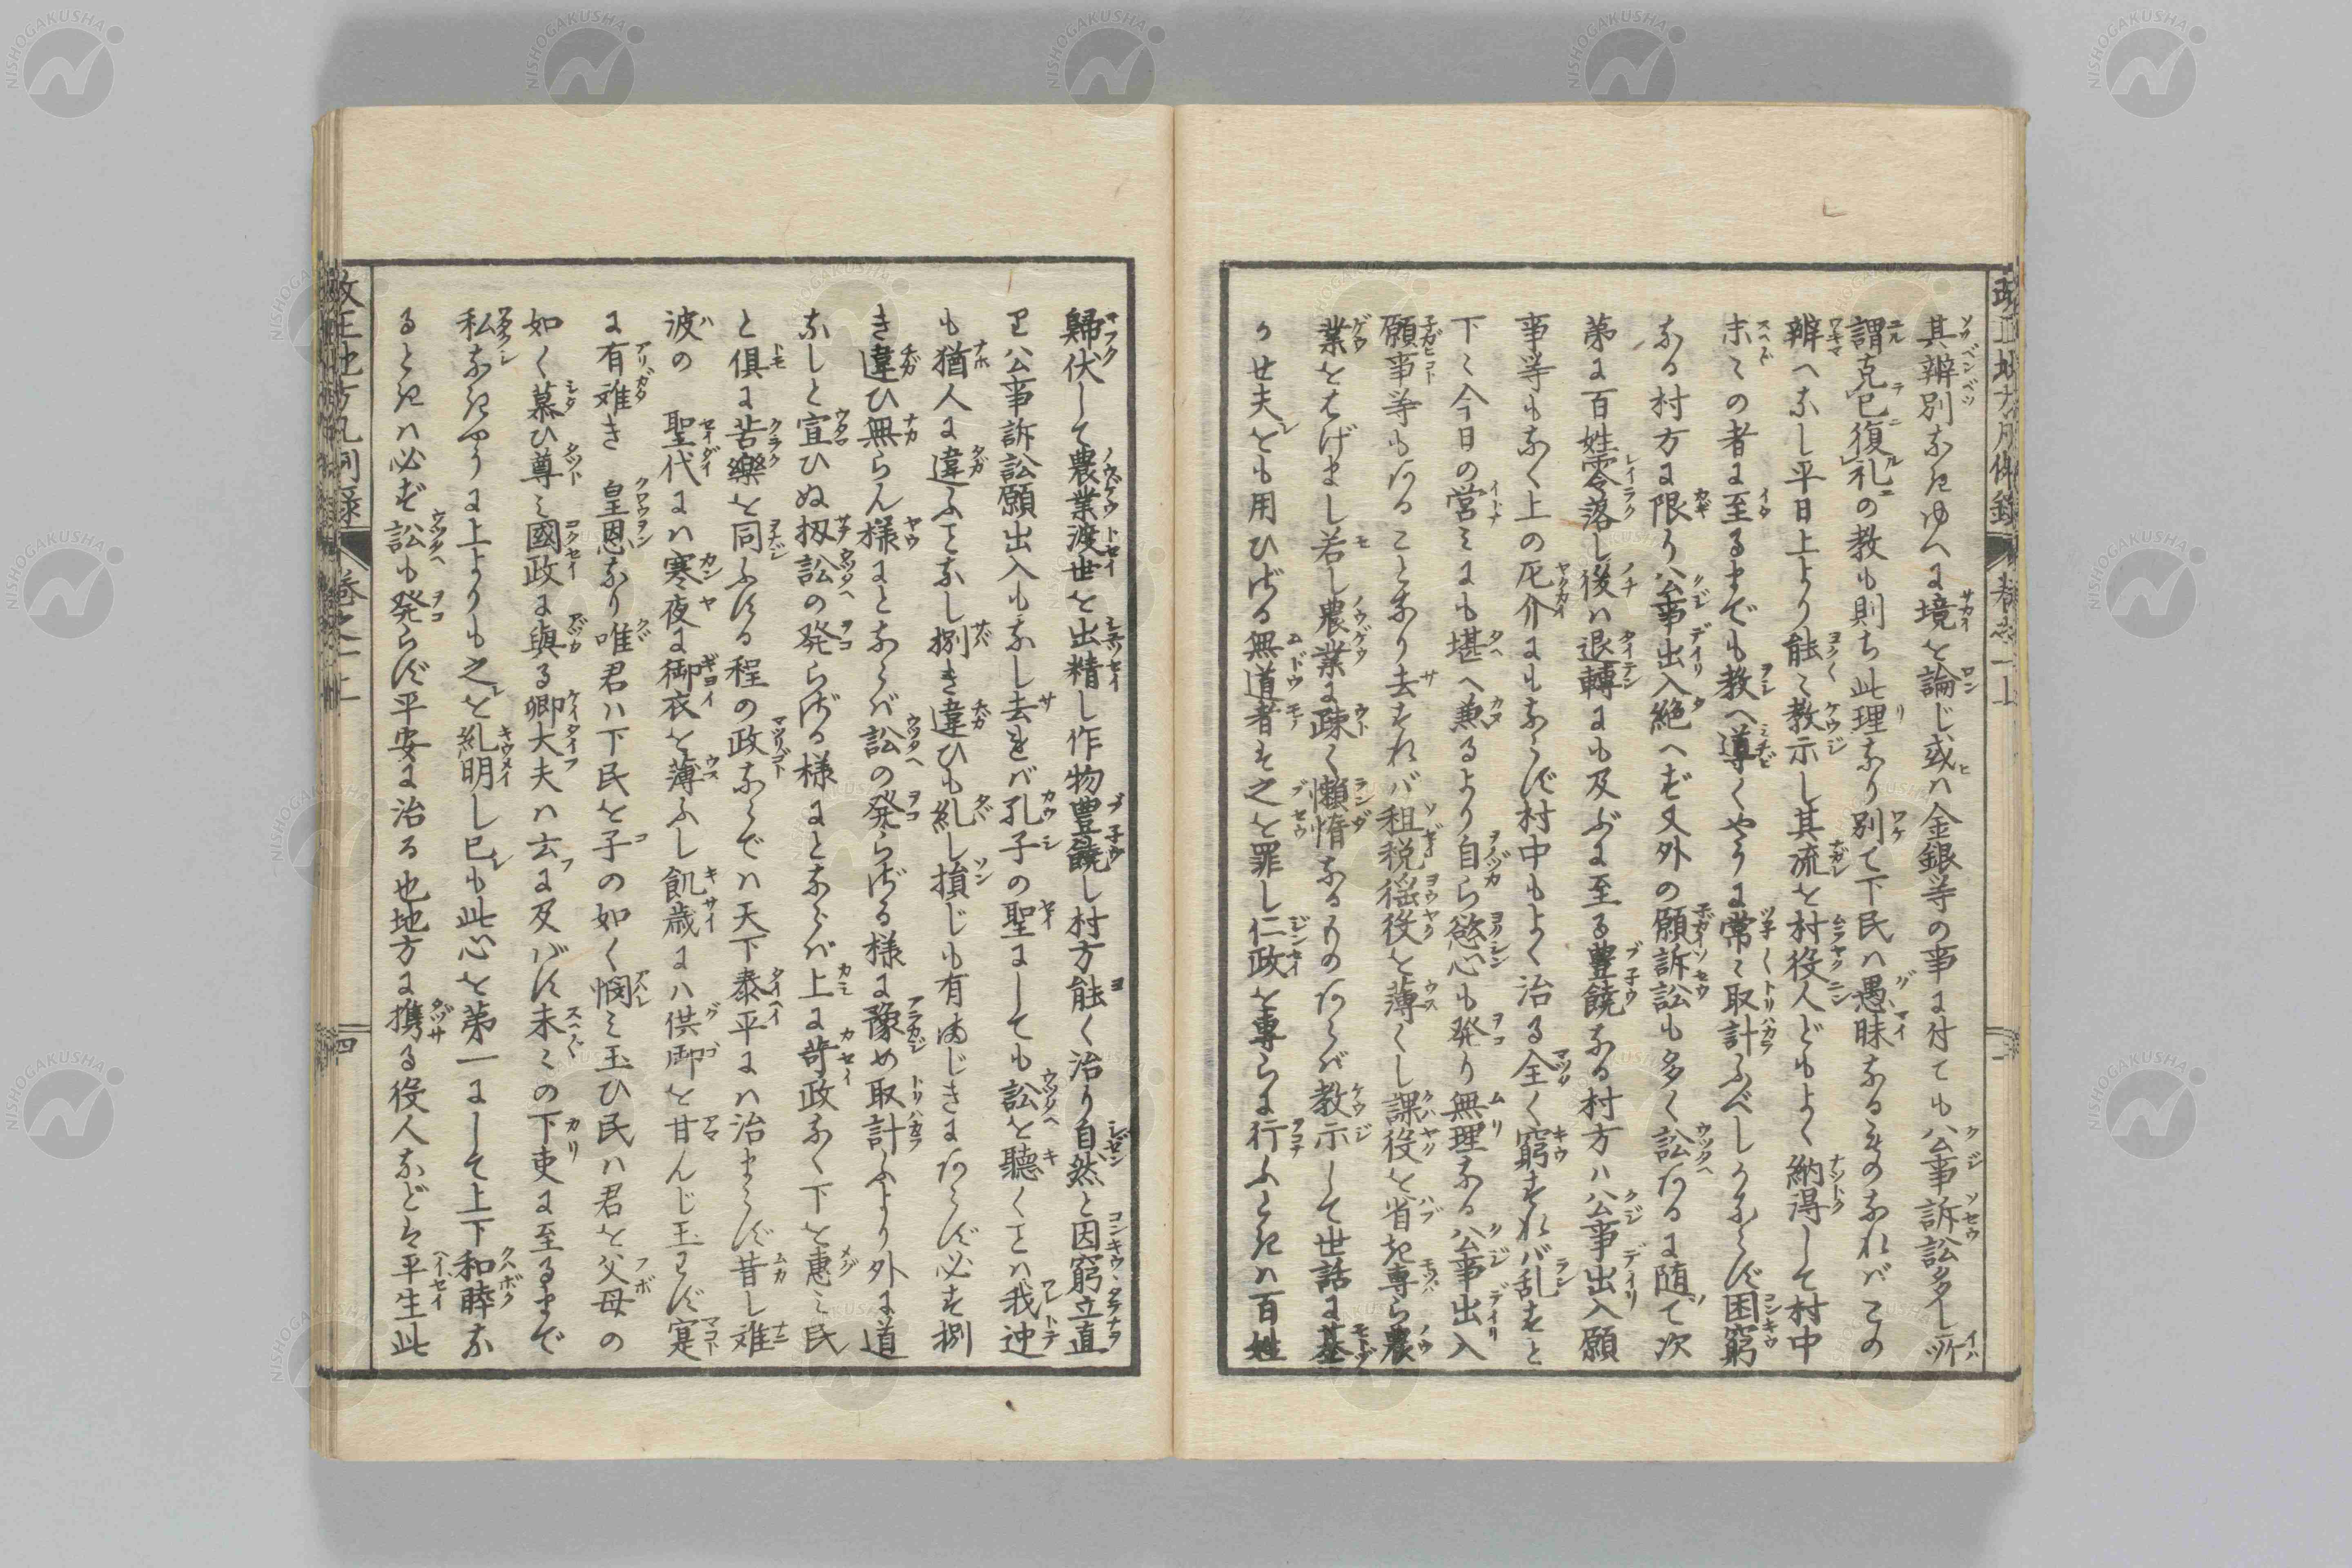 其辨別なきゆへに境を論じ或ハ金銀等の事に付ても公事訴訟多し所
謂克己復礼の教も則ち此理なり別て下民ハ愚昧なるものなれバこの
辨へなし平日上より能〻教示し其流を村役人どもよく納得して村中
末〻の者に至るまでも教へ導くやうに常〻取計ふべしかならず困窮
なる村方に限り公事出入絶へず又外の願訴訟も多く訟あるに随て次
第に百姓零落し後ハ退轉にも及ぶに至る豊饒なる村方ハ公事出入願
事等もなく上の厄介にもならず村中もよく治る全く窮すれバ乱すと
下〻今日の営ミにも堪へ兼るより自ら慾心も発り無理なる公事出入
願事等もあることなり去すれバ租税徭役を薄くし課役を省き専ら農
業をはげまし若し農業に疎く懶惰なるものあらバ教示して世話に基
か世夫とも用ひざる無道者は之を罪し仁政を専らに行ふときハ百姓
歸伏して農業渡世を出精し作物豊饒し村方能く治り自然と困窮立直
り公事訴訟願出入もなし去をバ孔子の聖にしても訟を聴くことハ我迚
も猶人に違ふことなし捌き違ひも糺し損じも有まじきにあらず必す捌
き違ひ無らん様にとならバ訟の発らざる様に豫め取計ふより外に道
なしと宣ひぬ扨訟の発らざる様にとならバ上に苛政なく下を惠ミ民
と俱に苦樂を同ふする程の政ならでハ天下泰平にハ治まらず昔し難
波の 聖代にハ寒夜に御衣を薄ふし飢歳にハ供御を甘んじ玉わず寔
に有難き 皇恩なり唯君ハ下民を子の如く憫ミ玉ひ民ハ君を父母の
如く慕ひ尊ミ國政に與る卿大夫ハ云に及バず末〻の下吏に至るまで
私なきやうに上よりも之を糺明し己も此心を第一にして上下和睦な
るときハ必ず訟も発らず平安に治る也地方に携る役人などは平生此
改正地方凡例録 巻之一上
四